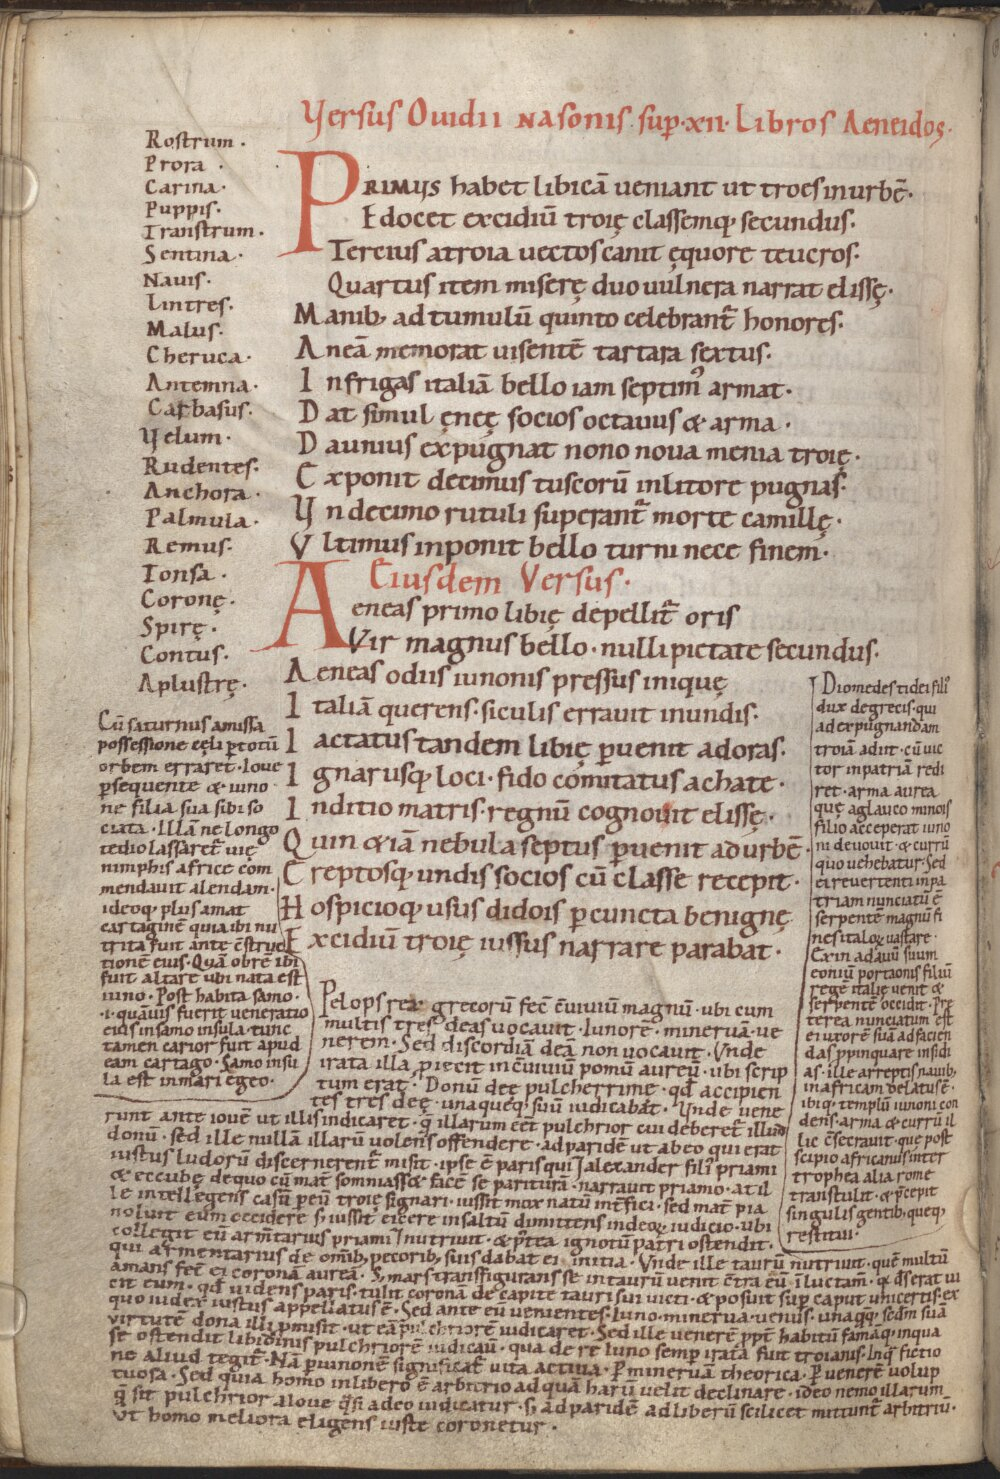 Versus Ouidii Nasonis sup̄ ·xii· Libros Aeneidos·
Rostrum·
Prora·
Carina·
Puppis·
Transtrum·
Sentina·
Nauis·
Lintres·
Malus·
Cheruca·
Antemna·
Carbasus·
Velum·
Rudentes·
Anchora·
Palmula·
Remus·
Tonsa·
Coronę·
Spirę·
Contus·
Aplustrę·
PRIMUS habet libicā ueniant ut troes in urbē·
Edocet excidiū troię classemq; secundus·
Tercius a troia uectos canit ęquore teucros·
Quartus item miserę duo uulnera narrat elissę·
Manib; ad tumulū quinto celebrant̄ honores·
Aneā memorat uisentē tartara sextus·
In frigas italiā bello iam septim᷒ armat·
Dat simul ęneę socios octauus & arma·
Daunius expugnat nono noua menia troię·
Exponit decimus tuscorū in litore pugnas·
Vndecimo rutuli superant̄ morte camillę·
Vltimus inponit bello turni nece finem·
Eiusdem Versus·
Aeneas primo libię depellit̄ oris
Vir magnus bello· nulli pietate secundus·
Aeneas odiis iunonis pressus iniquę
Italiā querens· siculis errauit in undis·
Iactatus tandem libię ꝑuenit ad oras·
Ignarusq; loci· fido comitatus achate·
Inditio matris· regnū cognouit elissę·
Quin & iā nebula septus ꝑuenit ad urbē·
Ereptosq; undis socios cū classe recepit·
Hospicioq; usus didois ꝑ cuncta benignę
Excidiū troię iussus narrare parabat·
Cū saturnus amissa
possessione cęli ꝑ totū
orbem erraret· Ioue
ꝑsequente & iuno
ne filia sua sibi so
ciata· Illā ne longo
tedio lassaret̄ uię
nimphis africe com
mendauit alendam·
ideoq; plus amat
cartaginē quia ibi nu
trita fuit ante c̄struc
tionē eius· Quā obrē ibi
fuit altare ubi nata est
iuno· Post habita samo·
·i· quāuis fuerit ueneratio
eius in samo insula· tunc
tamen carior fuit apud
eam cartago· Samo insu
la est in mari egeo·
Diomedes tidei fili᷒
dux de grecis· qui
ad expugnandam
troiā adiit· cū uic
tor in patriā redi
ret· arma aurea
quę a glauco minois
filio acceperat iuno
ni deuouit· & currū
quo uehebatur· Sed
ei reuertenti in pa
triam nunciatū ē
serpentē magnū fi
nes italoꝝ uastare·
serpentē occidit· Pre
terea nunciatum est
ei uxorē suā ad facien
das ꝓpinquare insidi
as· ille arreptis nauib;
in africam delatus ē·
ibiq; templū iunoni con
dens· arma & currū il
lic c̄secrauit· que post
scipio africanus inter
trophea alia rome
transtulit· & p̄cepit
singulis gentib; queq;
restitui·
Pelops rex grecorū fec̄ c̄uiuiū magnū· ubi cum
multis tres deas uocauit· Iunonē· mineruā· ue
nerem· Sed discordiā deā non uocauit· Vnde
irata illa ꝓiecit in c̄uiuiū pomū aureū· ubi scrip
tum erat· Donū deę pulcherrime· qd̄ accipien
tes tres deę· unaqueq; suū iudicabat· Vnde uene
runt ante iouē ut illis indicaret· q̄ illarum eēt pulchrior cui deberet̄ illud
donū· sed ille nullā illarū uolens offendere· ad paridē ut ab eo qui erat
iustus ludorū discernerent̄ misit· ipse ē paris qui & alexander fili᷒ priami
& eccubę de quo cū mat̄ somniasset facē se pariturā· narrauit priamo· at il
le intellegens casū ꝑ eū troię signari· iussit mox natū int̄fici· sed mat̄ pia
noluit eum occidere s; iussit eicere in saltū dimittens in deoꝝ iudicio· ubi
collegit eū arm̄tarius priami & nutriuit· & p̄tea ignotū patri ostendit·
qui armentarius de omib; pecorib; suis dabat ei initia· Vnde ille taurū nutriuit· quē multū
amans fec̄ ei coronā aureā· S; mars transfigurans se in taurū uenit c̄tra eū
erit eum· qd̄ uidens paris· tulit coronā de capite tauri sui uicti· & posuit sup̄ caput uincentis· ex
quo iudex iustus appellatus ē· Sed ante eū uenientes· Iuno· minerua· uenus· unaqq; sedm̄ suā
uirtutē dona illi ꝓmisit· ut eā pulchriorē iudicaret· Sed ille uenerē ppt̄ habitū famāq; in qua
se ostendit libidinis pulchriorē iudicau̅· qua de re iuno semꝑ irata fuit troianis· Inq; fictio
ne aliud tegit̄· Nā ꝑ iunonē significat̄ uita actiua· Ꝑ mineruā theorica· Ꝑ uenerē uolup
tuosa· Sed quia homo in libero ē arbitrio ad quā harū uelit declinare· ideo nemo illarum
q̄ sit pulchrior a ioue q̄si a deo iudicatur· s; ad paridē ad liberū scilicet mittunt̄ arbitriū·
Vt homo meliora eligens iuste coronetur·